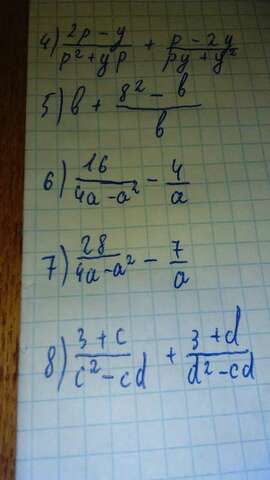 4) (2p - y)/(p² + yp) + (p - 2y)/(py + y²)
5) b + (8² - b)/b
6) 16/(4a - a²) - 4/a
7) 28/(4a - a²) - 7/a
8) (3 + c)/(c² - cd) + (3 + d)/(d² - cd)